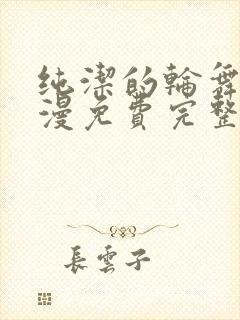 純潔的輪舞
漫免費完整
長雲子